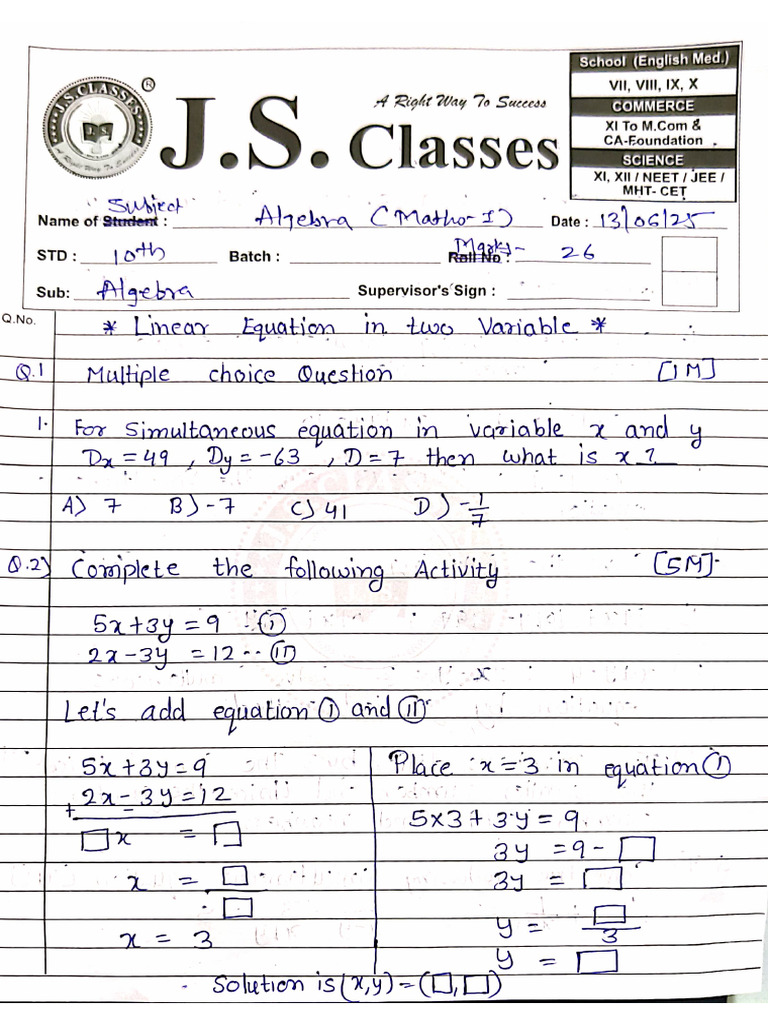 School (English Med.)
VII, VIII, IX, X
COMMERCE
XI To M.Com &
CA-Foundation
SCIENCE
XI, XII / NEET / JEE /
MHT- CET
J.S.CLASSES
J. S.
A Right Way To Success
®
A Right Way To Success
J.S. Classes
Subject
Name of Student : Algebra (Maths-I) Date : 13/06/25
STD : 10th Batch : Marks- Roll No : 26
Sub: Algebra Supervisor's Sign :
Q.No.
* Linear Equation in two Variable *
Q.1 Multiple choice Question [1M]
1. For simultaneous equation in variable x and y
Dx = 49 , Dy = -63 , D = 7 then what is x ?
A) 7 B) -7 C) 41 D) -1/7
Q.2) Complete the following Activity [5M]
5x+3y = 9 -- (I)
2x-3y = 12 -- (II)
Let's add equation (I) and (II)
5x+3y=9
+ 2x-3y=12
□x = □
x = □/□
x = 3
Place x=3 in equation (I)
5×3 + 3y = 9
3y = 9 - □
3y = □
y = □/3
y = □
Solution is (x,y) = (□,□)